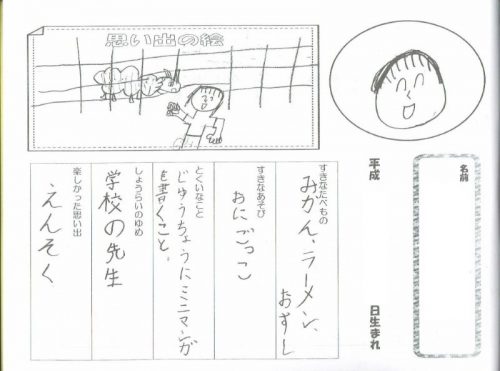 思い出の絵
名前
平成
日生まれ
すきなたべもの
みかん、ラーメン、
おすし
すきなあそび
おにごっこ
とくいなこと
じゆうちょうにミニマンガ
を書くこと、
しょうらいのゆめ
学校の先生
楽しかった思い出
えんそく